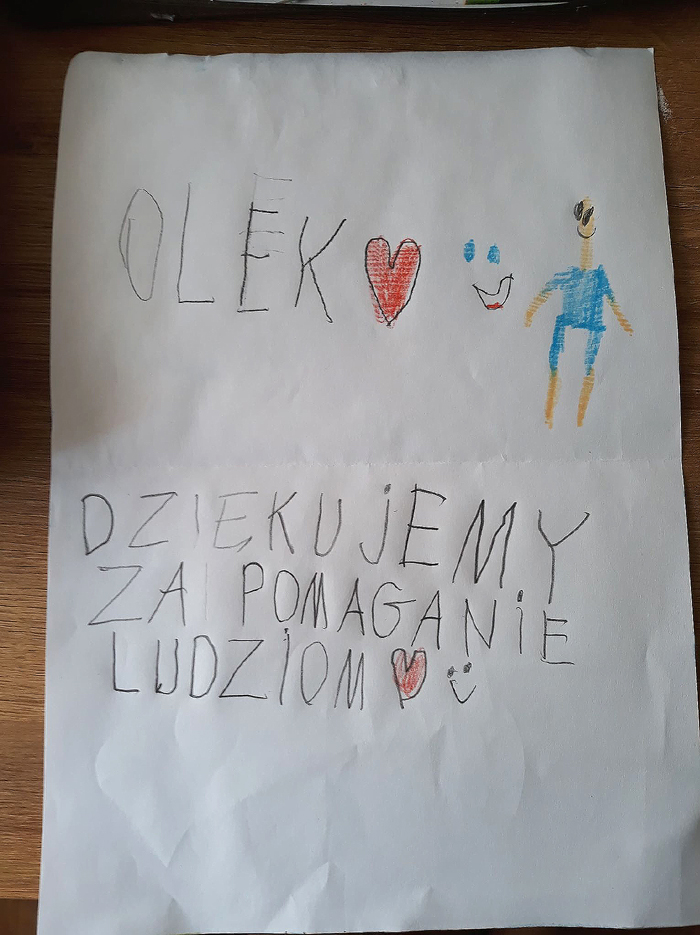 OLEK
DZIEKUJEMY
ZA POMAGANIE
LUDZIOM